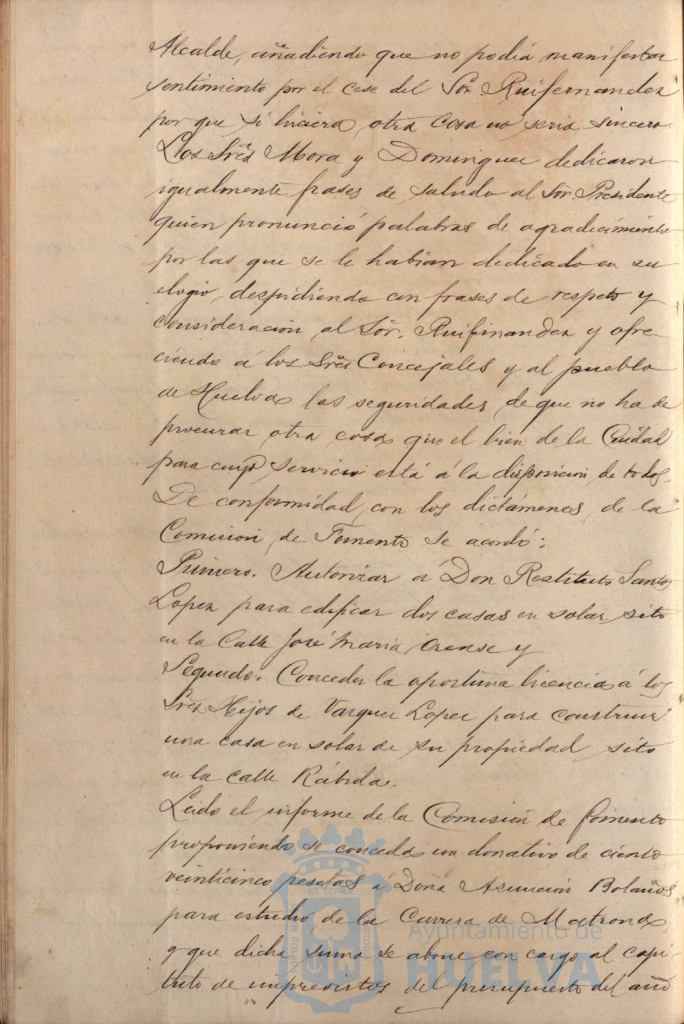 Alcalde, añadiendo que no podia manifestar
sentimiento por el cese del Sor Ruifernandez
por que si hiciera otra cosa no seria sincero
Los Sres Mora y Dominguez dedicaron
igualmente frases de saludo al Sor Presidente
quien pronunció palabras de agradecimiento
por las que se le habian dedicado en su
elogio, despidiendo con frases de respeto y
consideración al Sor. Ruifernandez y ofre-
ciendo á los Sres Concejales y al pueblo
de Huelva las seguridades de que no ha de
procurar otra cosa que el bien de la Ciudad
para cuyo servicio está á la disposicion de todos.
De conformidad con los dictámenes de la
Comision de Fomento se acordó:
Primero. Autorizar á Don Restituto Santos
Lopez para edificar dos casas en solar sito
en la Calle José Maria Orense y
Segundo. Conceder la oportuna licencia á los
Sres Hijos de Vazquez Lopez para construir
una casa en solar de su propiedad sito
en la calle Rábida.
Leido el informe de la Comisión de fomento
proponiendo se conceda un donativo de ciento
veinticinco pesetas á Doña Asuncion Bolaños
para estudio de la Carrera de Matrona
y que dicha suma se abone con cargo al capi-
tulo de imprevistos del presupuesto del año
Ayuntamiento de
HUELVA